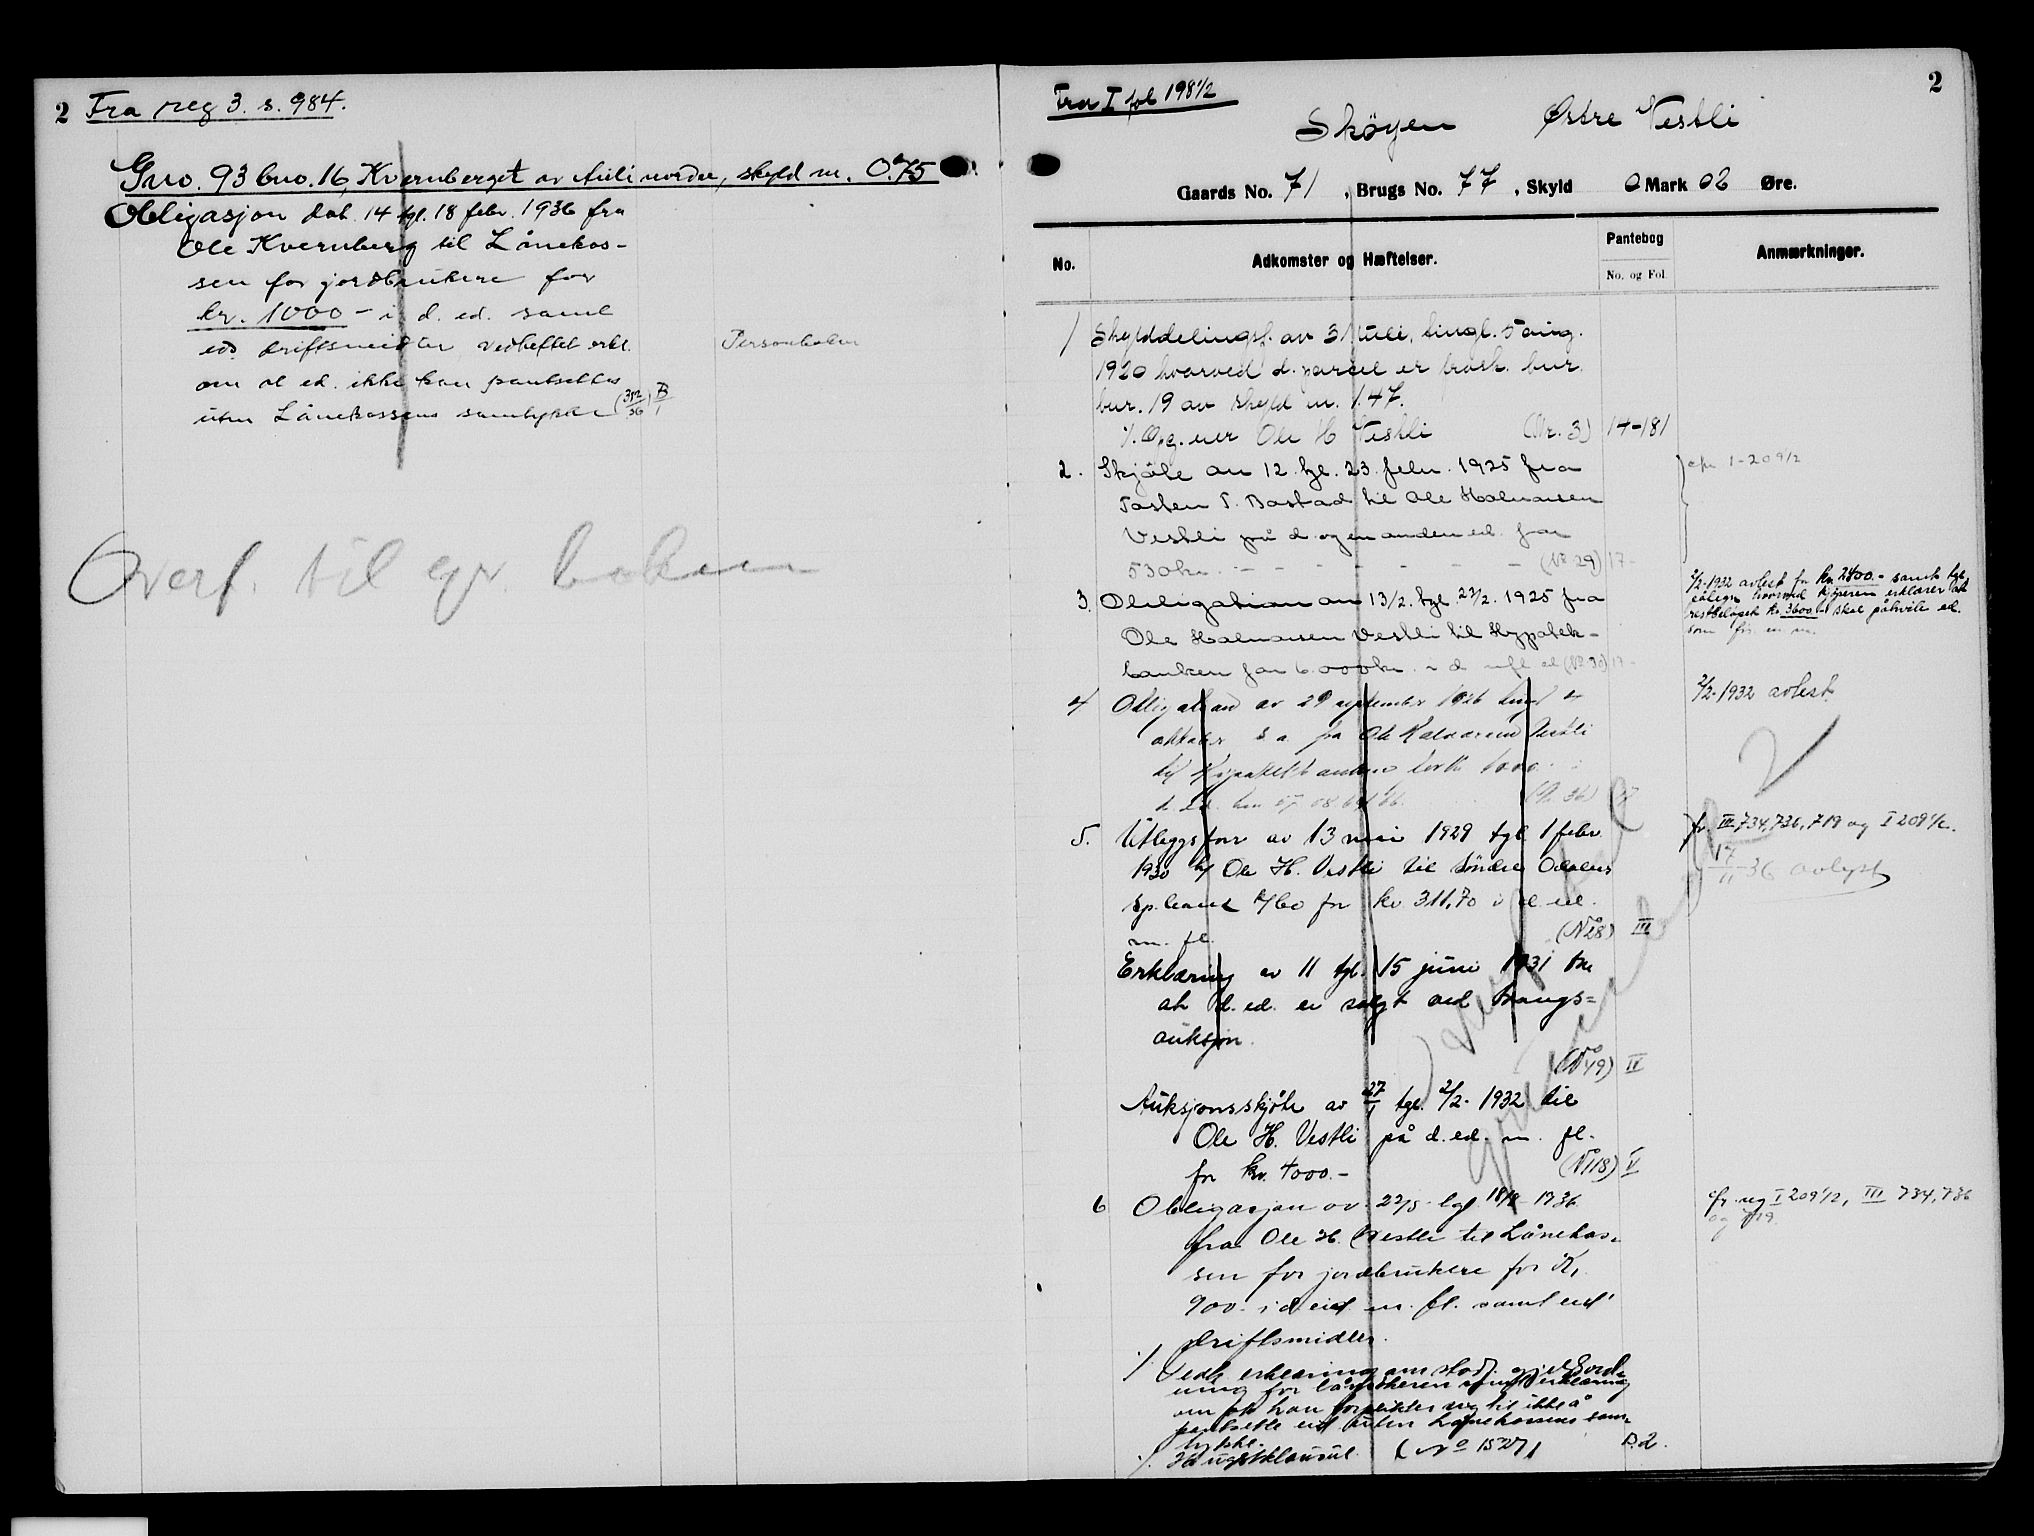 2 Fra reg 3. s. 984.
Gno. 93 bno. 16, Kvernberget av Auli nordre, skyld m. 0.75
Obligasjon dat. 14 tgl. 18 febr. 1936 fra
Ole Kvernberg til Lånekas-
sen for jordbrukere for
kr. 1000 - i d. ed. samt
ed. driftsmidler vedheftet erkl.
om at ed. ikke kan pantsettes
uten Lånekassens samtykke (392/36) B/1
Personbolen
Overf. til gr. boken
Fra I fol 198 1/2
2
Skøyen Østre Vestli
Gaards No. 71, Brugs No. 77, Skyld 0 Mark 02 Øre.
No.
Adkomster og Hæftelser.
Pantebog
No. og Fol.
Anmærkninger.
1 Skylddelingsf. av 31 juli, tingl. 5 aug.
1920 hvorved d. parcel er frask. bur.
bur. 19 av skyld m. 1.47.
/. Opg. eier Ole H Vestli (Nr. 3) 14-181
2. Skjøte av 12 tgl. 23 febr. 1925 fra
Bastad til Ole Halvorsen
Vestli på d. og en anden ed. for
530 kr. - - - - - - (No 29) 17-
cfr 1-209 1/2
3. Obligation av 13/2. tgl. 23/2. 1925 fra
Ole Halvorsen Vestli til Hypotek-
banken for 6.000 kr. i d. m fl ed (No 30) 17-
2/2-1932 avlest for kr. 2400.- samt tgl.
påtegn. hvorved kjøperen erklærer at
restbeløpet kr. 3600.- skal påhvile ed.
som før en m.
4 Obligation av 29 september 1926 tingl 4
oktober s. a. fra Ole Halvorsen Vestli
til Hypotekbanken 1000.-
(No 36) 17
2/2-1932 avlest.
5. Utleggsforr av 13 mai 1929 tgl 1 febr
1930 hj Ole H. Vestli til Søndre Odalens
sp.bank for kr. 311,70 i d. ed.
m. fl. (No 28) III
fr. III 734, 736, 719 og I 209 1/2.
17/11-36 avlyst
Erklæring av 11 tgl. 15 juni 1931 om
at d. ed. er solgt ved tvangs=
auksjon.
(No 49) IV
Auksjonsskjøte av 27/1 tgl. 2/2- 1932 til
Ole H. Vestli på d. ed. m. fl.
for kr. 4000.- (No 118) V
6 Obligasjon av 22/5 tgl 18/8 1936
fra Ole H. Vestli til Lånekas-
sen for jordbrukere for Kr.
900.- i d. eid. m. fl. samt eid.
driftsmidler.
cfr. reg I 209 1/2, III 734, 736
og 719.
/. Vedh. erklæring om stadf. gjeldsord-
ning for låntakeren samt erklæring
om at han forplikter sig til ikke å
pantsette eid uten Lånekassens sam-
tykke.
/. Haugstklausul. (No 1527) B. 2.